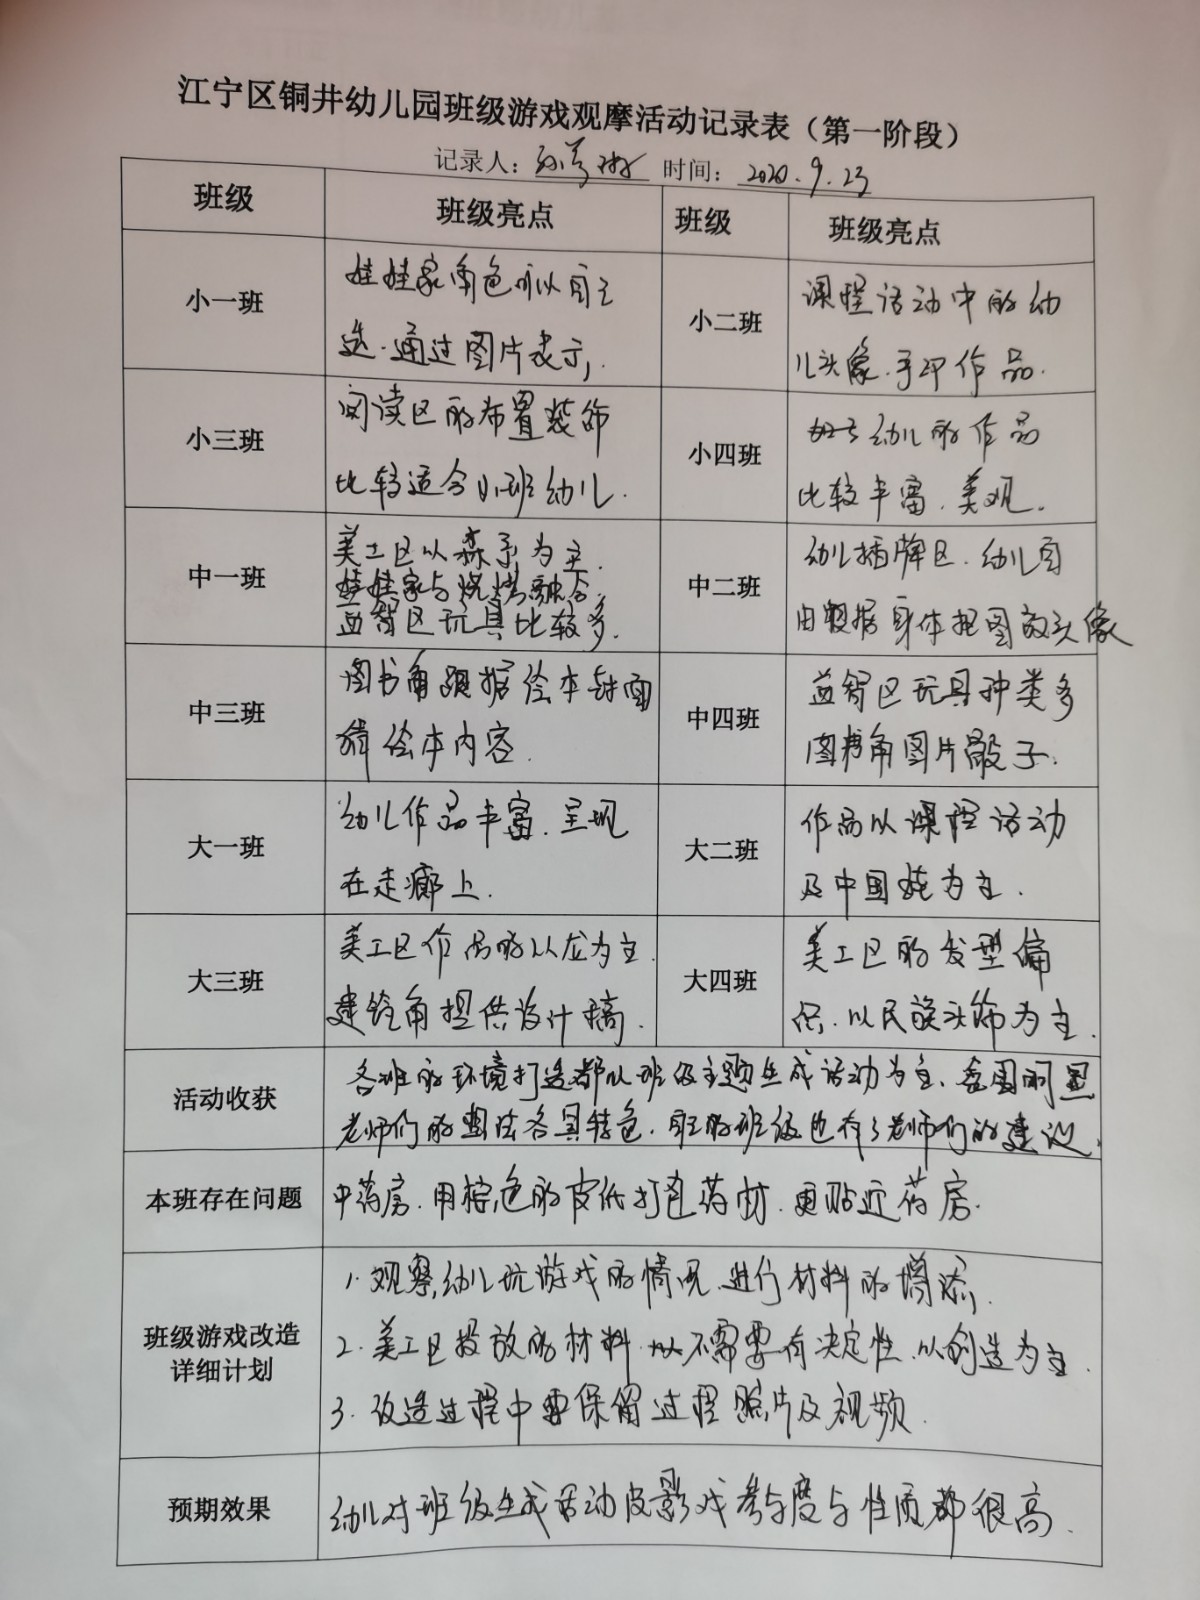 江宁区铜井幼儿园班级游戏观摩活动记录表（第一阶段）
记录人： 时间：2020.9.23
班级 班级亮点 班级 班级亮点
小一班
娃娃家角色可以自主
选.通过图片表示,
小二班
课程活动中的幼
儿头像.手印作品.
小三班
阅读区的布置装饰
比较适合小班幼儿.
小四班
幼儿的作品
比较丰富.美观。
中一班
美工区以森系为主.
娃娃家与烧烤融合.
益智区玩具比较多.
中二班
幼儿插牌区.幼儿自
由根据身体把图放头像
中三班
图书角跟据绘本封面
猜绘本内容.
中四班
益智区玩具种类多
图书角图片骰子.
大一班
幼儿作品丰富.呈现
在走廊上.
大二班
作品以课程活动
及中国娃为主.
大三班
美工区作品的以龙为主.
建铨角提供设计稿.
大四班
美工区的发型偏
以民族头饰为主.
活动收获
各班的环境打造都以班级主题生成活动为主、
老师们的各具特色.班级也有了老师们的建议.
本班存在问题
中药房.用棕色的皮纸打包药材.更贴近药房.
班级游戏改造
详细计划
1.观察幼儿玩游戏的情况.进行材料的增添,
2.美工区投放的材料不需要有决定性.以创造为主.
3.改造过程中要保留过程照片及视频.
预期效果
幼儿对班级生成活动皮影戏参与度与性质都很高.